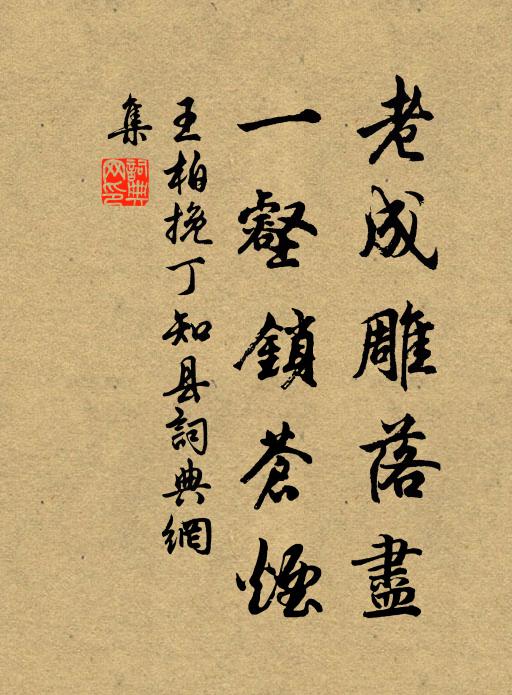 老成雕落盡
一壑鎖蒼煙
王柏挽丁知县詞典網
集
詞典
网印